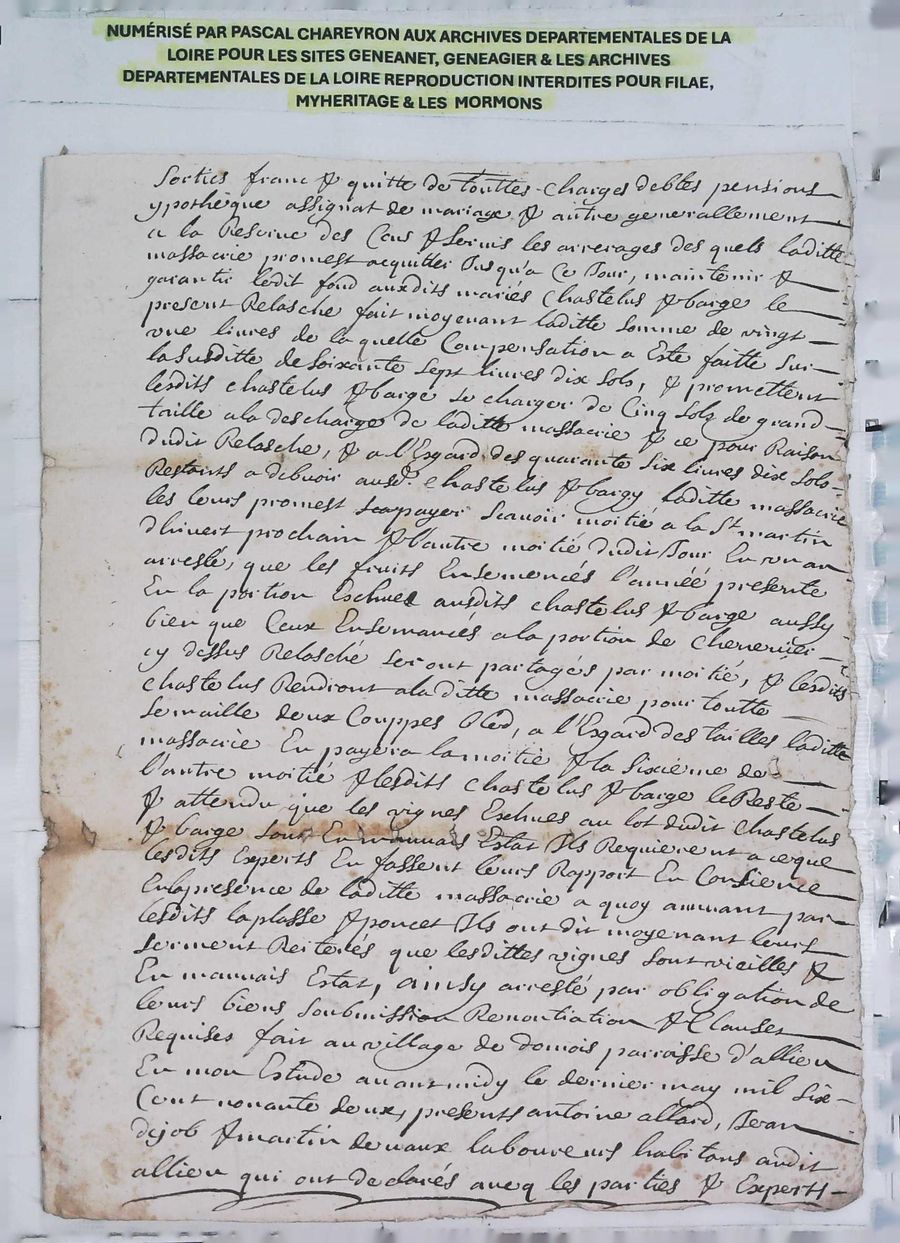 NUMÉRISÉ PAR PASCAL CHAREYRON AUX ARCHIVES DEPARTEMENTALES DE LA
LOIRE POUR LES SITES GENEANET, GENEAGIER & LES ARCHIVES
DEPARTEMENTALES DE LA LOIRE REPRODUCTION INTERDITES POUR FILAE,
MYHERITAGE & LES MORMONS
Sorties franc & quitte de touttes charges debtes pensions
ypotheque assignat de mariage & autre generallement
a la Reserve des Cens & servis les arrerages des quels laditte
massacrie promest acquitter Jusqu'a Ce Jour, maintenir &
garantir ledit fond auxdits mariés Chastelus & barge le
present Relasche fait moyenant laditte somme de vingt
une livres de la quelle Compensation a Esté faitte sur
la susditte de soixante sept livres dix sols, & promettent
lesdits chastelus & barge se charger de Cinq sols de grand
taille a la descharge de laditte massacrie & ce pour Raison
dudit Relasche, & a l'Esgard des quarante six livres dix sols
Restants a debvoir ausd. chastelus & bargy laditte massacrie
les leurs promest payer scavoir moitié a la St martin
d'hivert prochain & l'autre moitié dudit Jour En un an
arresté, que les fruits Ensemencés l'année presente
En la portion Escheue ausdits chastelus & barge aussy
bien que Ceux Ensemancés a la portion de chenevier
cy dessus Relasché seront partagés par moitié, & lesdits
chastelus Rendront a laditte massacrie pour toutte
semaille deux Couppes bled, a l'Esgard des tailles laditte
massacrie En payera la moitié & la sixieme de
l'autre moitié & lesdits chastelus & barge le Reste
& attendu que les vignes Escheues au lot dudit chastelus
& barge sont En mauvais Estat Ils Requierent a ce que
lesdits Experts En fassent leurs Rapport En Consience
En la presence de laditte massacrie a quoy par
lesdits laplasse & poncet Ils ont dit moyenant leurs
serment Reiterés que lesdittes vignes sont vieilles &
En mauvais Estat, ainsy arresté par obligation de
leurs biens soubmission Renontiation & Clauses
Requises fait au village de domois parroisse d'allieu
En mon Estude avant midy le dernier may mil six
Cent nonante deux, presents antoine allard, Jean
dejob & martin devaux laboureurs habitans audit
allieu qui ont declarés aveq les parties & Experts